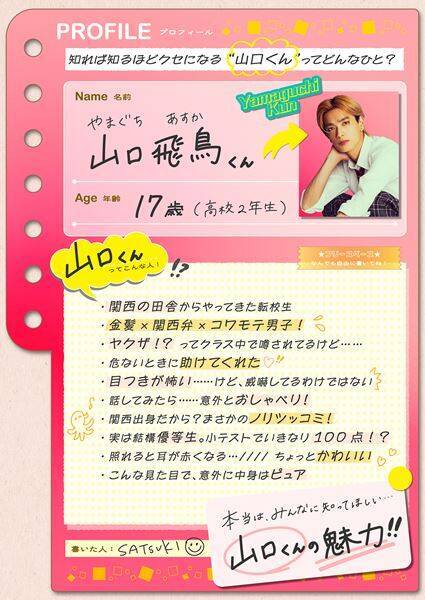 PROFILE プロフィール
知れば知るほどクセになる “山口くん” ってどんなひと？
Name 名前
Yamaguchi
Kun
やまぐち あすか
山口 飛鳥くん
Age 年齢
17歳 (高校2年生)
山口くん
ってこんな人！
!?
★フリースペース★
なんでも自由に書いてね！
・関西の田舎からやってきた転校生
・金髪×関西弁×コワモテ男子！
・ヤクザ！？ってクラス中で噂されてるけど……
・危ないときに助けてくれた♡
・目つきが怖い……けど、威嚇してるわけではない
・話してみたら……意外とおしゃべり！
・関西出身だから？まさかのノリツッコミ！
・実は結構優等生。小テストでいきなり100点！？
・照れると耳が赤くなる…//// ちょっとかわいい
・こんな見た目で、意外に中身はピュア
本当は、みんなに知ってほしい…
山口くんの魅力!!
書いた人：SATSUKI